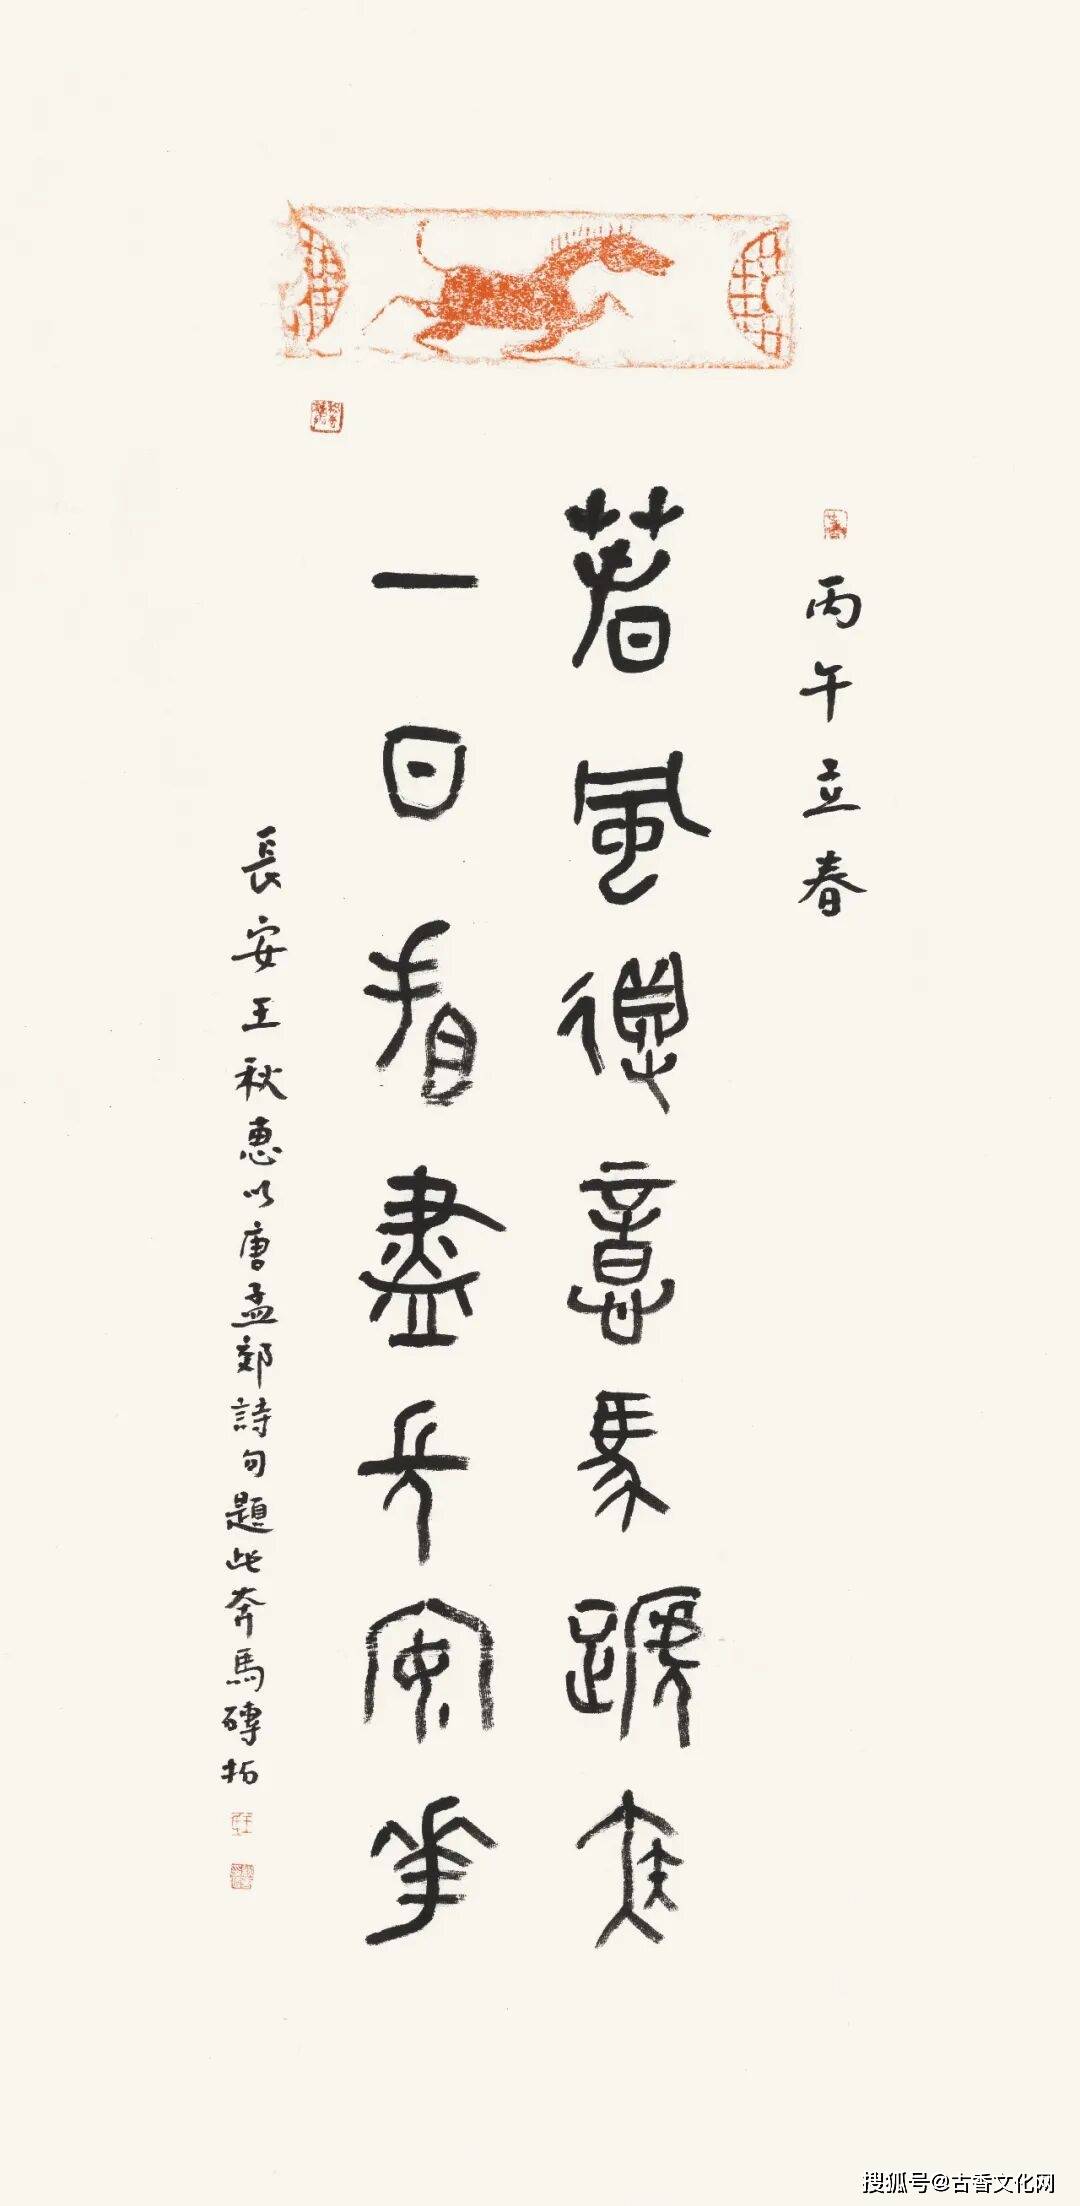 丙午立春
春風得意馬蹄疾
一日看盡長安花
長安王秋惠以唐孟郊詩句題此奔馬磚拓
搜狐号@古香文化网